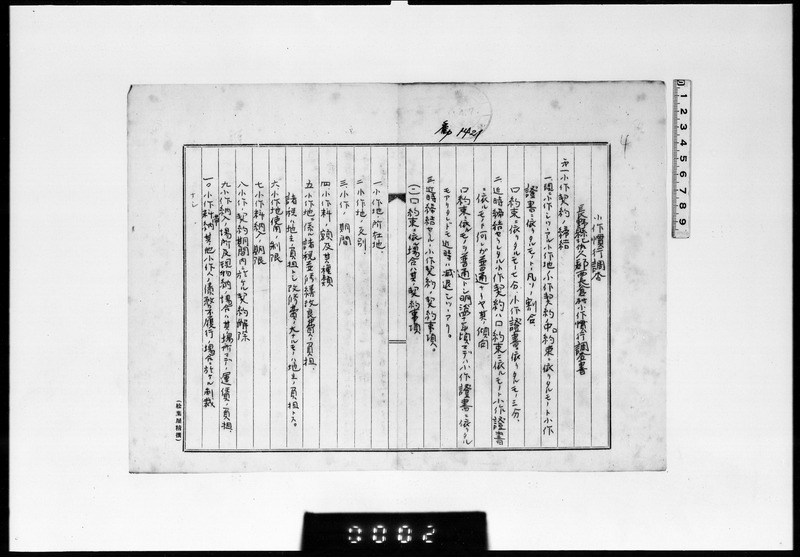 番 1421
小作慣行調査
長野縣北佐久郡 小作慣行調査書
第一 小作契約ノ締結
一、現ニ小作シツヽアル小作地ノ小作契約中口約束ニ依リタルモノト小作
證書ニ依リタルモノト凡ソノ割合
口約束ニ依リタルモノ七分、小作證書ニ依リタルモノ三分、
二、近時締結セラレタル小作契約ハ口約束ニ依ルモノト小作證書
ニ依ルモノト何レガ普通ナリヤ其ノ傾向
口約束ニ依ルモノヲ普通トシ明治 年頃マデハ小作證書ニ依リタル
モノアリタレドモ近時ハ減退シツヽアリ。
三、近時締結セル小作契約ノ契約事項。
(一)口約束ニ依ル場合ハ其ノ契約事項
一、小作地所在地、
二、小作地ノ反別、
三、小作ノ期間
四、小作料ノ額及其ノ種類
五、小作地ニ係ル諸税並修繕改良費ノ負担、
諸税ハ地主ノ負担トシ改修費ノ大ナルモノハ地主ノ負担トス。
六、小作地使用ノ制限
七、小作料納ノ期限
八、小作ノ契約期間内ニ於ケル契約解除
九、小作納入ノ場所及現物納ノ場合ハ其ノ場所マデノ運賃ノ負担、
一〇、小作料滯納其他小作人ノ義務不履行ノ場合ニ於ケル制裁
ナシ
(松葉屋精撰)
0 1 2 3 4 5 6 7 8 9
0002